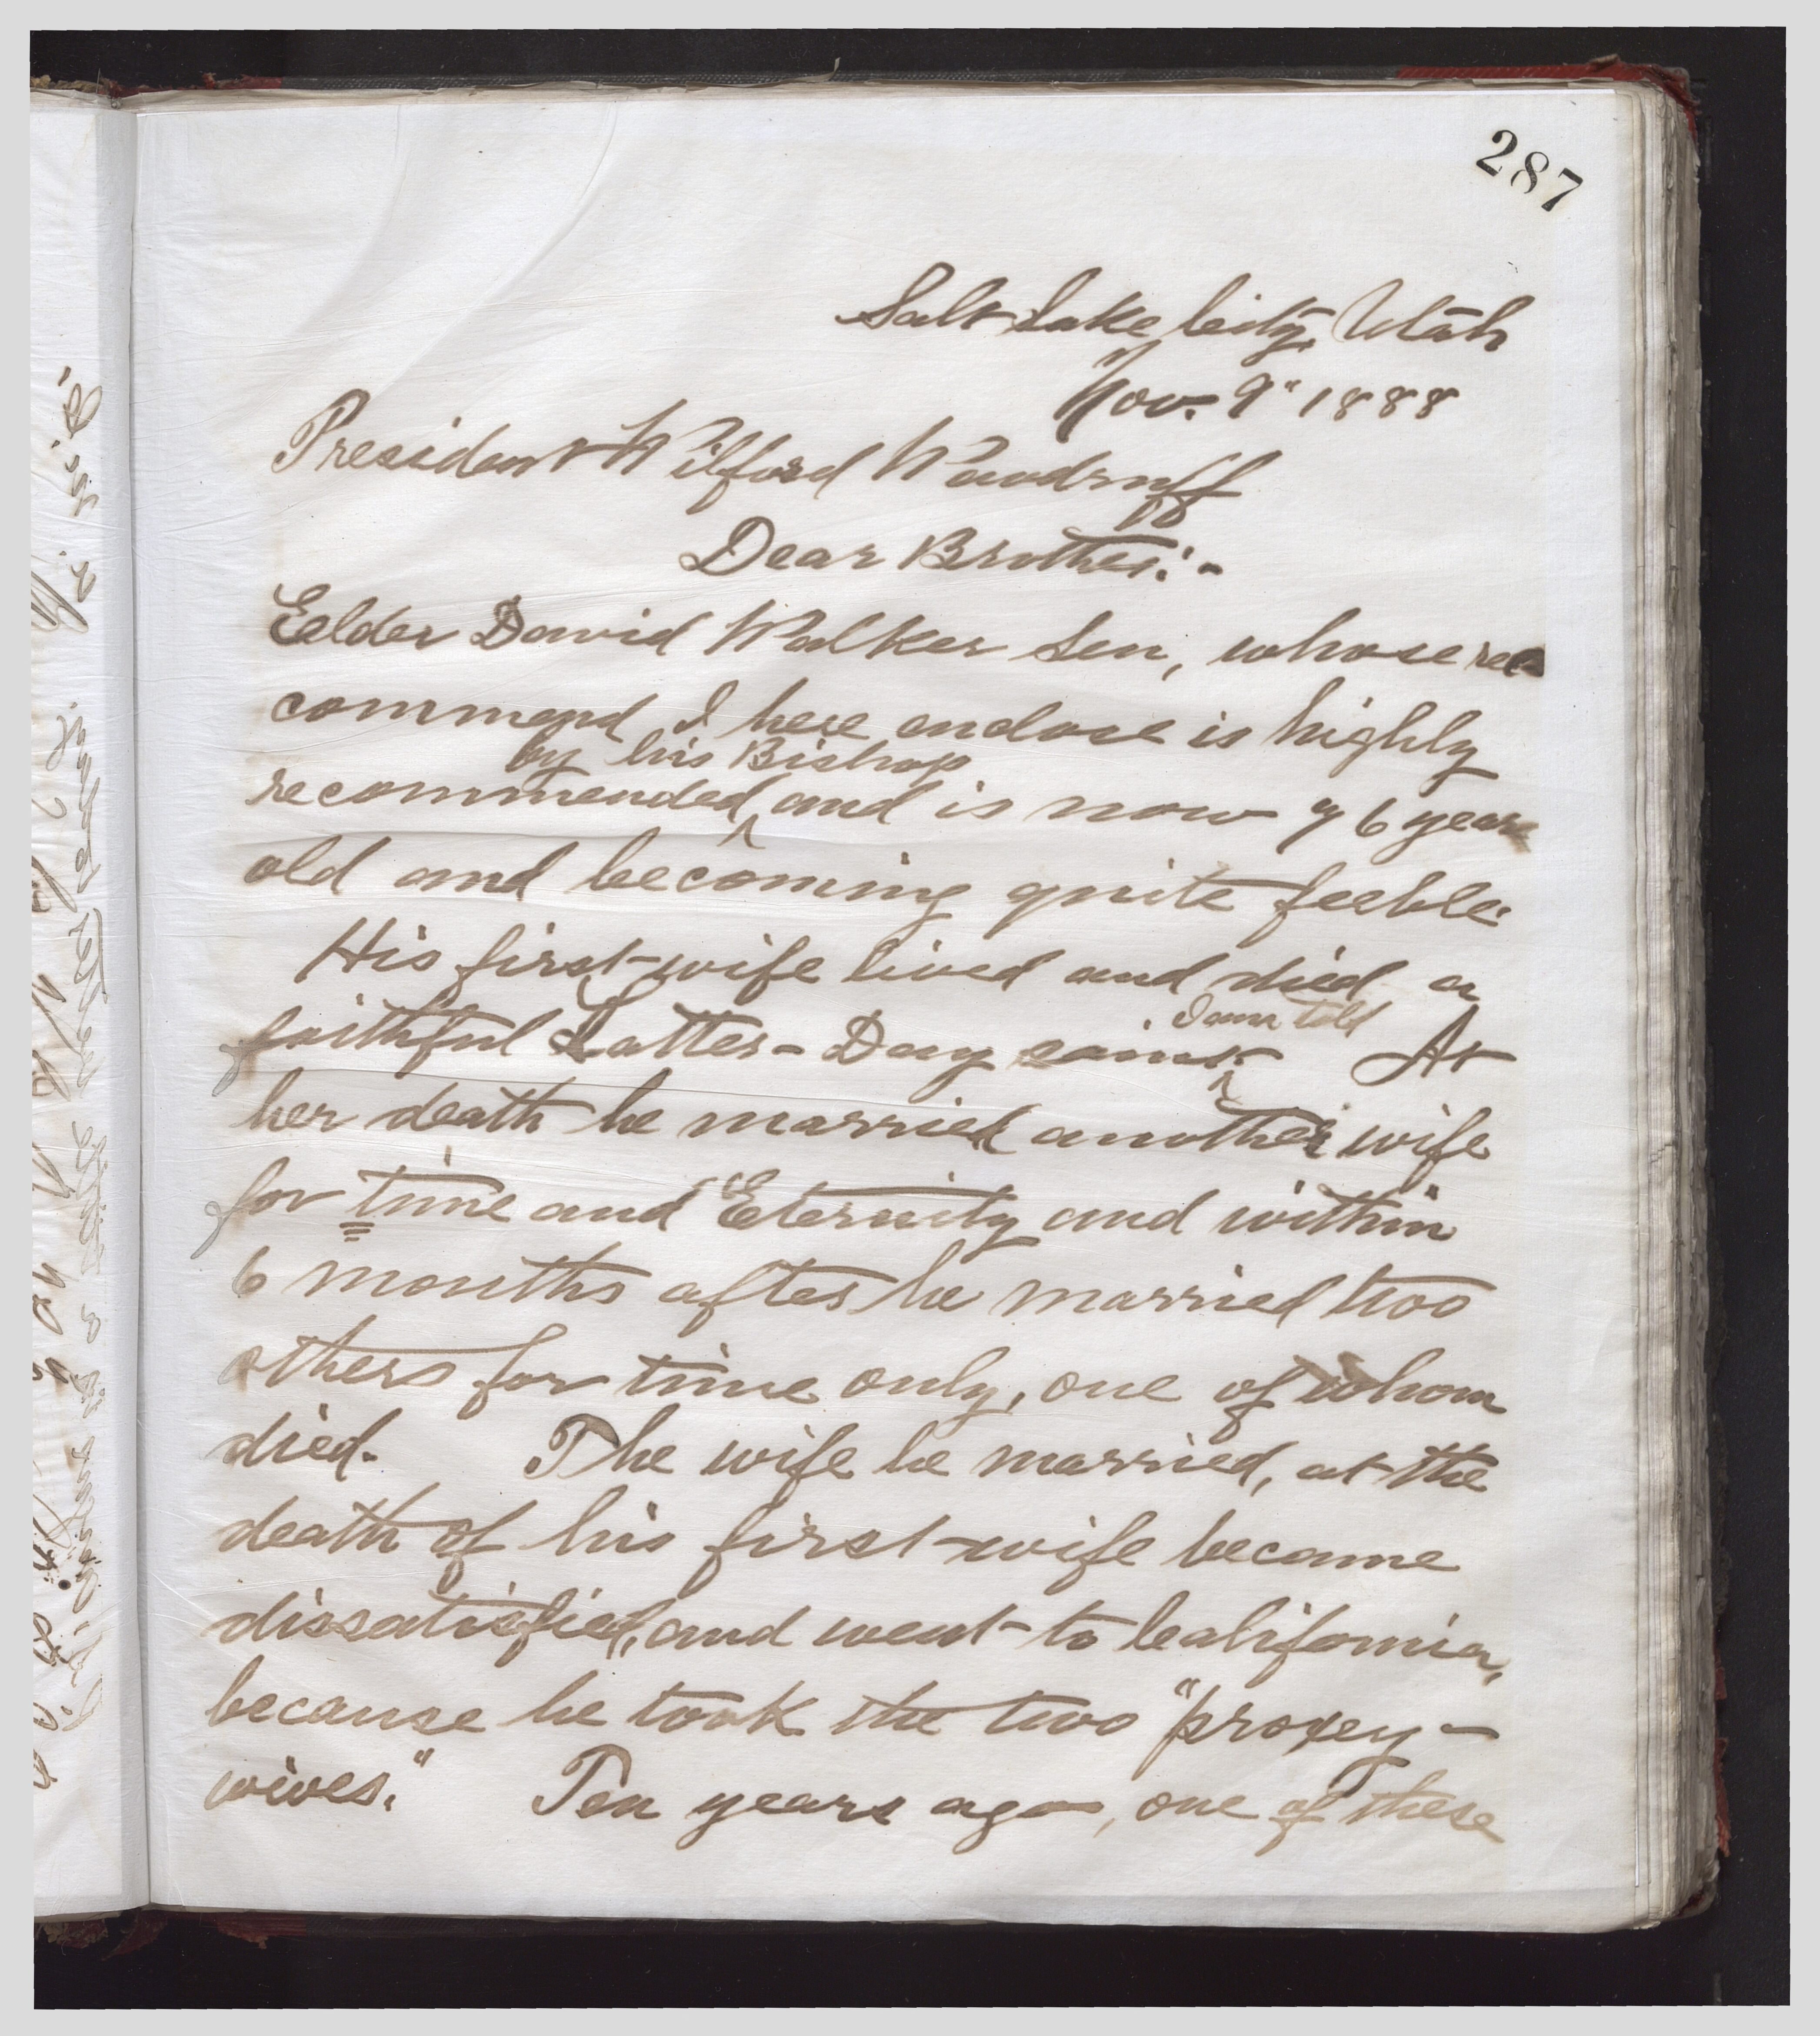 287
Salt Lake City, Utah
Nov. 9" 1888
President Wilford Woodruff
Dear Brother:-
Eelder David Walker Sen, whose re
commend I here enclose is highly
by his Bishop
recommended and is now 76 years
old and becoming quite feeble.
His first wife lived and died a
I am told
faithful Latter-Day saint. At
her death he married another wife
for time and Eternity and within
6 months after he married two
others for time only, one of whom
died. The wife he married, at the
death of his first wife became
dissatisfied, and went to California,
because he took the two "proxey-
wives." Ten years ago, one of these